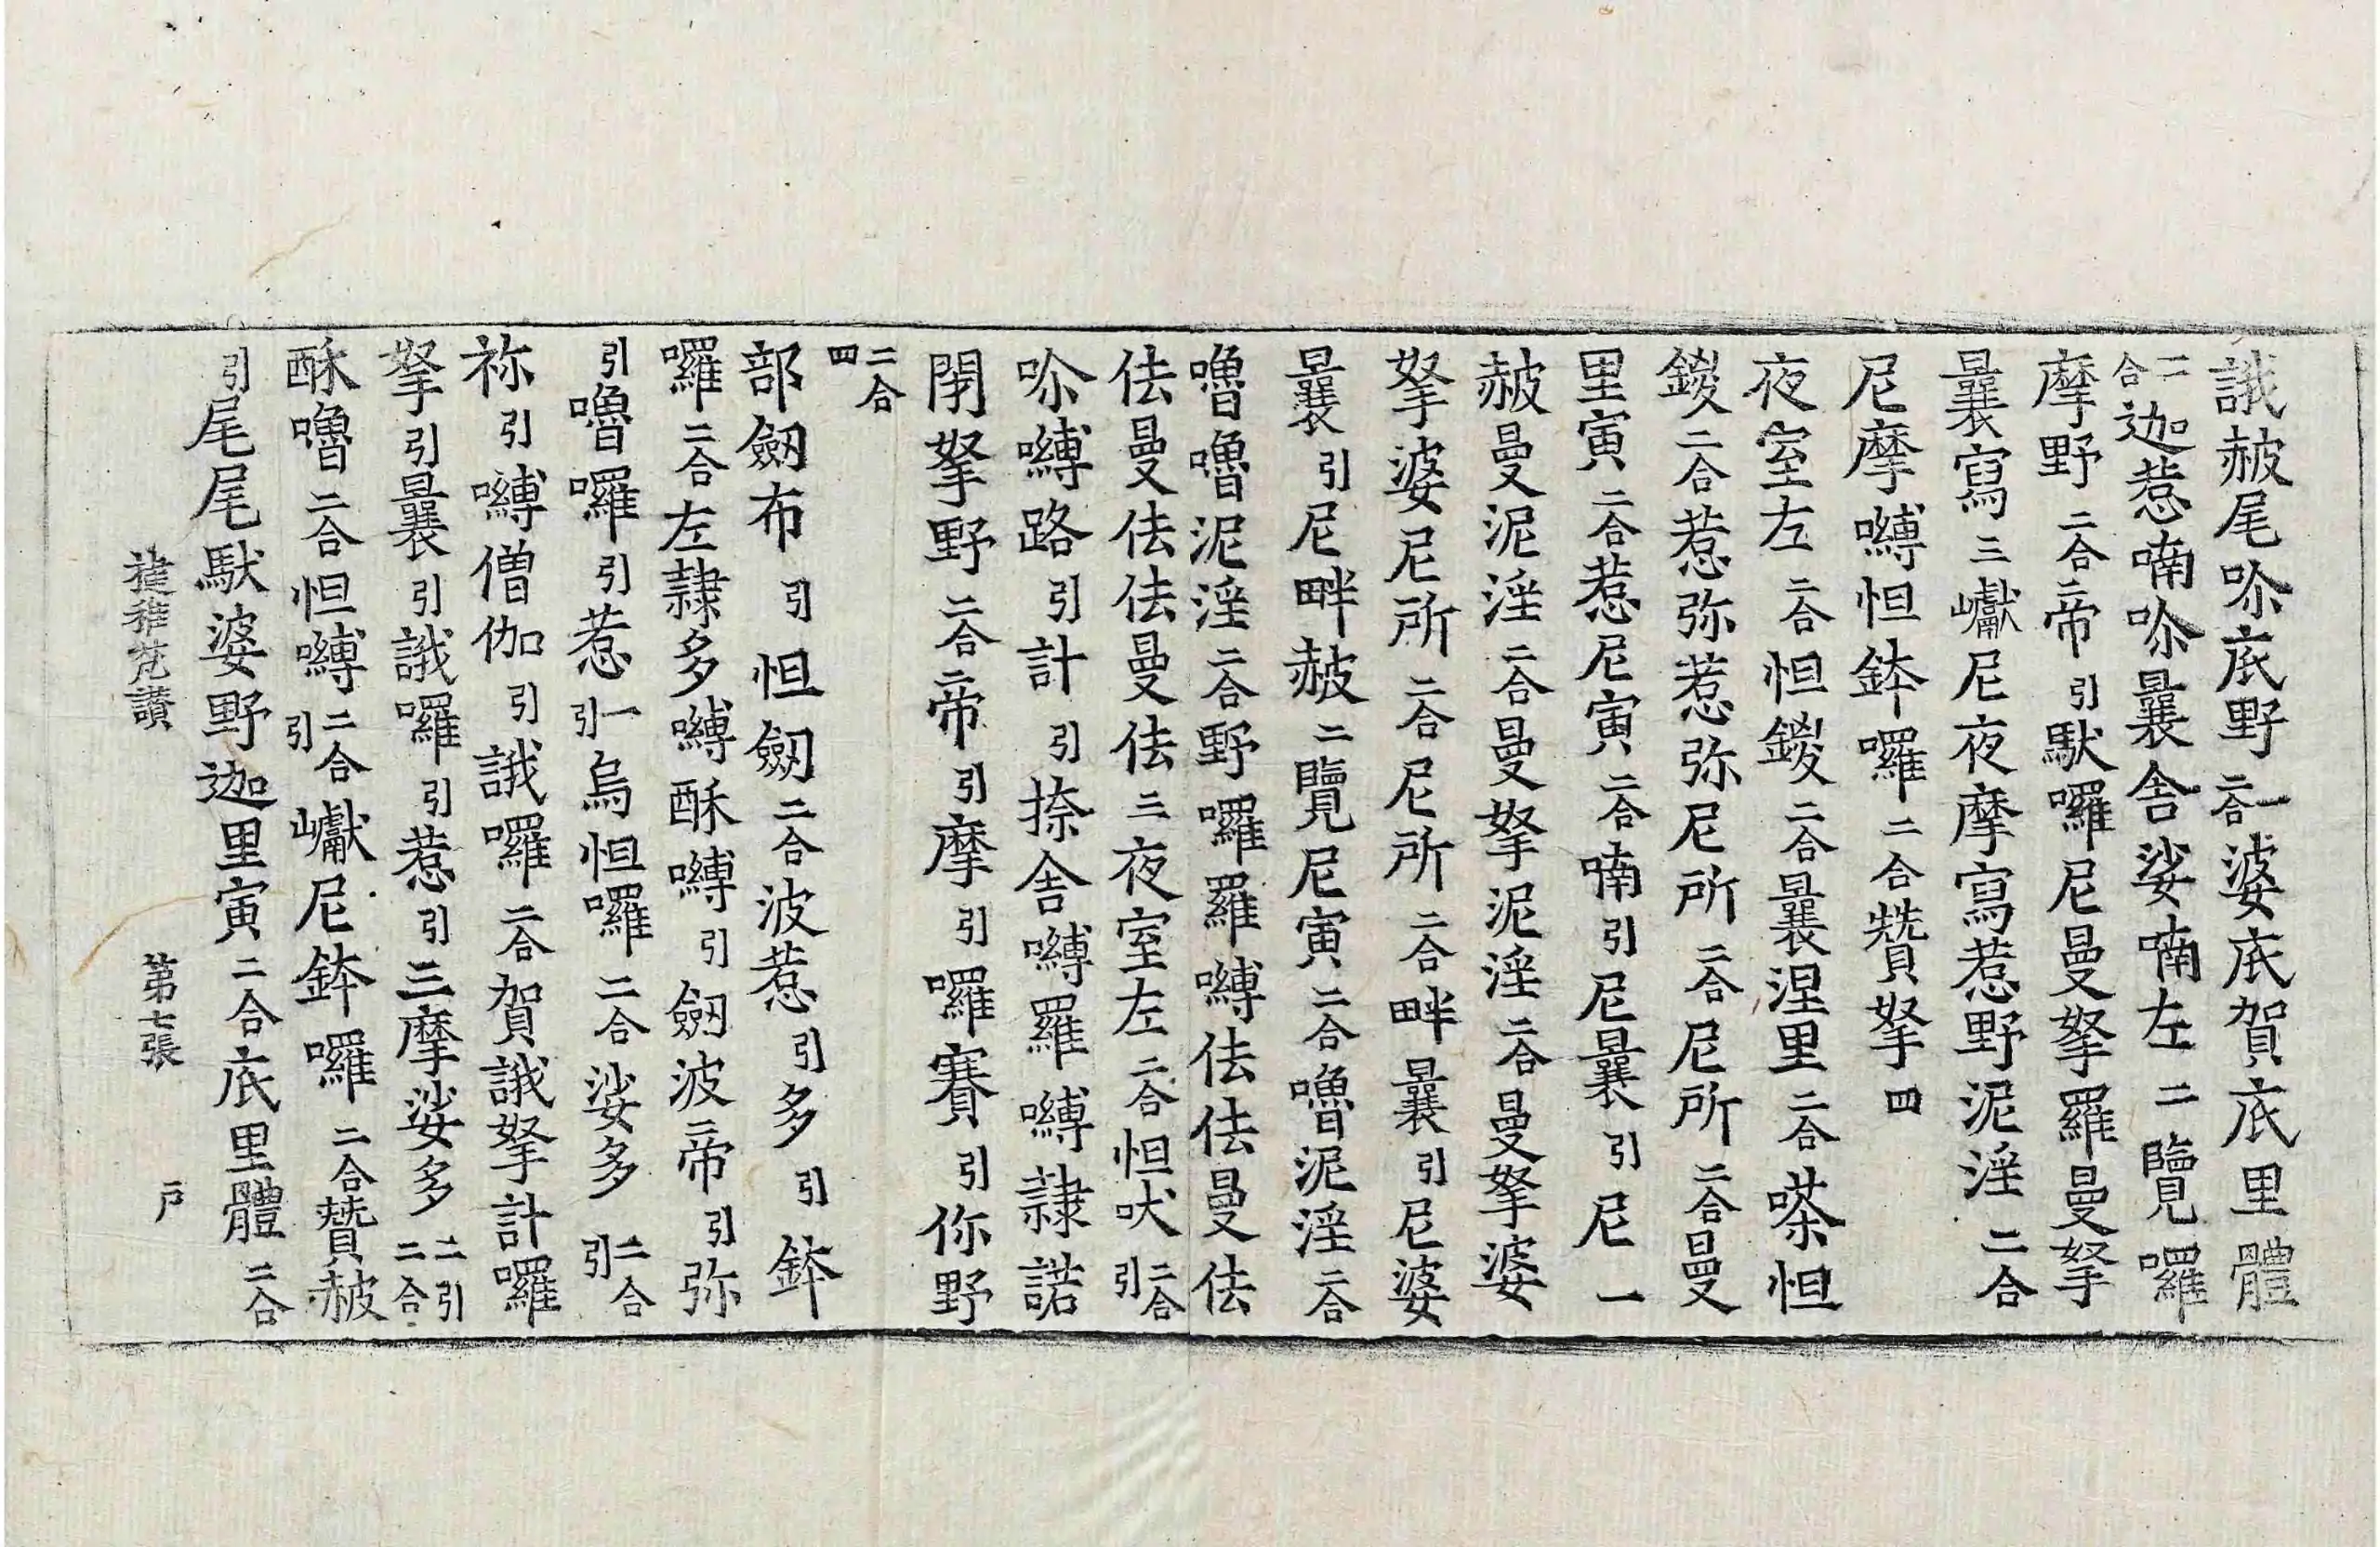 誐赧尾吩底野二合一婆底賀底里體
二合迦惹喃吩曩舍娑喃左二覽囉
摩野二合帝引馱囉尼曼拏羅曼拏
曩寫三巘尼夜摩寫惹野泥淫二合
尼摩嚩怛鉢囉二合贊拏四
夜室左二合怛鍐二合曩涅里二合嗏怛
鍐二合惹弥惹弥尼所二合尼所二合曼
里寅二合惹尼寅二合喃引尼曩引尼一
赧曼泥淫二合曼拏泥淫二合曼拏婆
拏婆尼所二合尼所二合畔曩引尼婆
曩引尼畔赧二覽尼寅二合嚕泥淫二合
嚕嚕泥淫二合野囉羅嚩佉佉曼佉
佉曼佉佉曼佉三夜室左二合怛吠二合引
吩嚩路引計引捺舍嚩羅嚩隷諾
閉拏野二合帝引摩引囉賽引你野
二合四
部劒布引怛劒二合波惹引多引鉢
囉二合左隷多嚩酥嚩引劒波帝引弥
引嚕囉引惹一引烏怛囉二合娑多二合引
祢引嚩僧伽引誐囉二合賀誐拏計囉
拏引曩引誐囉引惹引三摩娑多二引二合
酥嚕二合怛嚩二合引巘尼鉢囉二合贊赧
引尾尾馱婆野迦里寅二合底里體二合
揵稚梵讚 第七張 戸